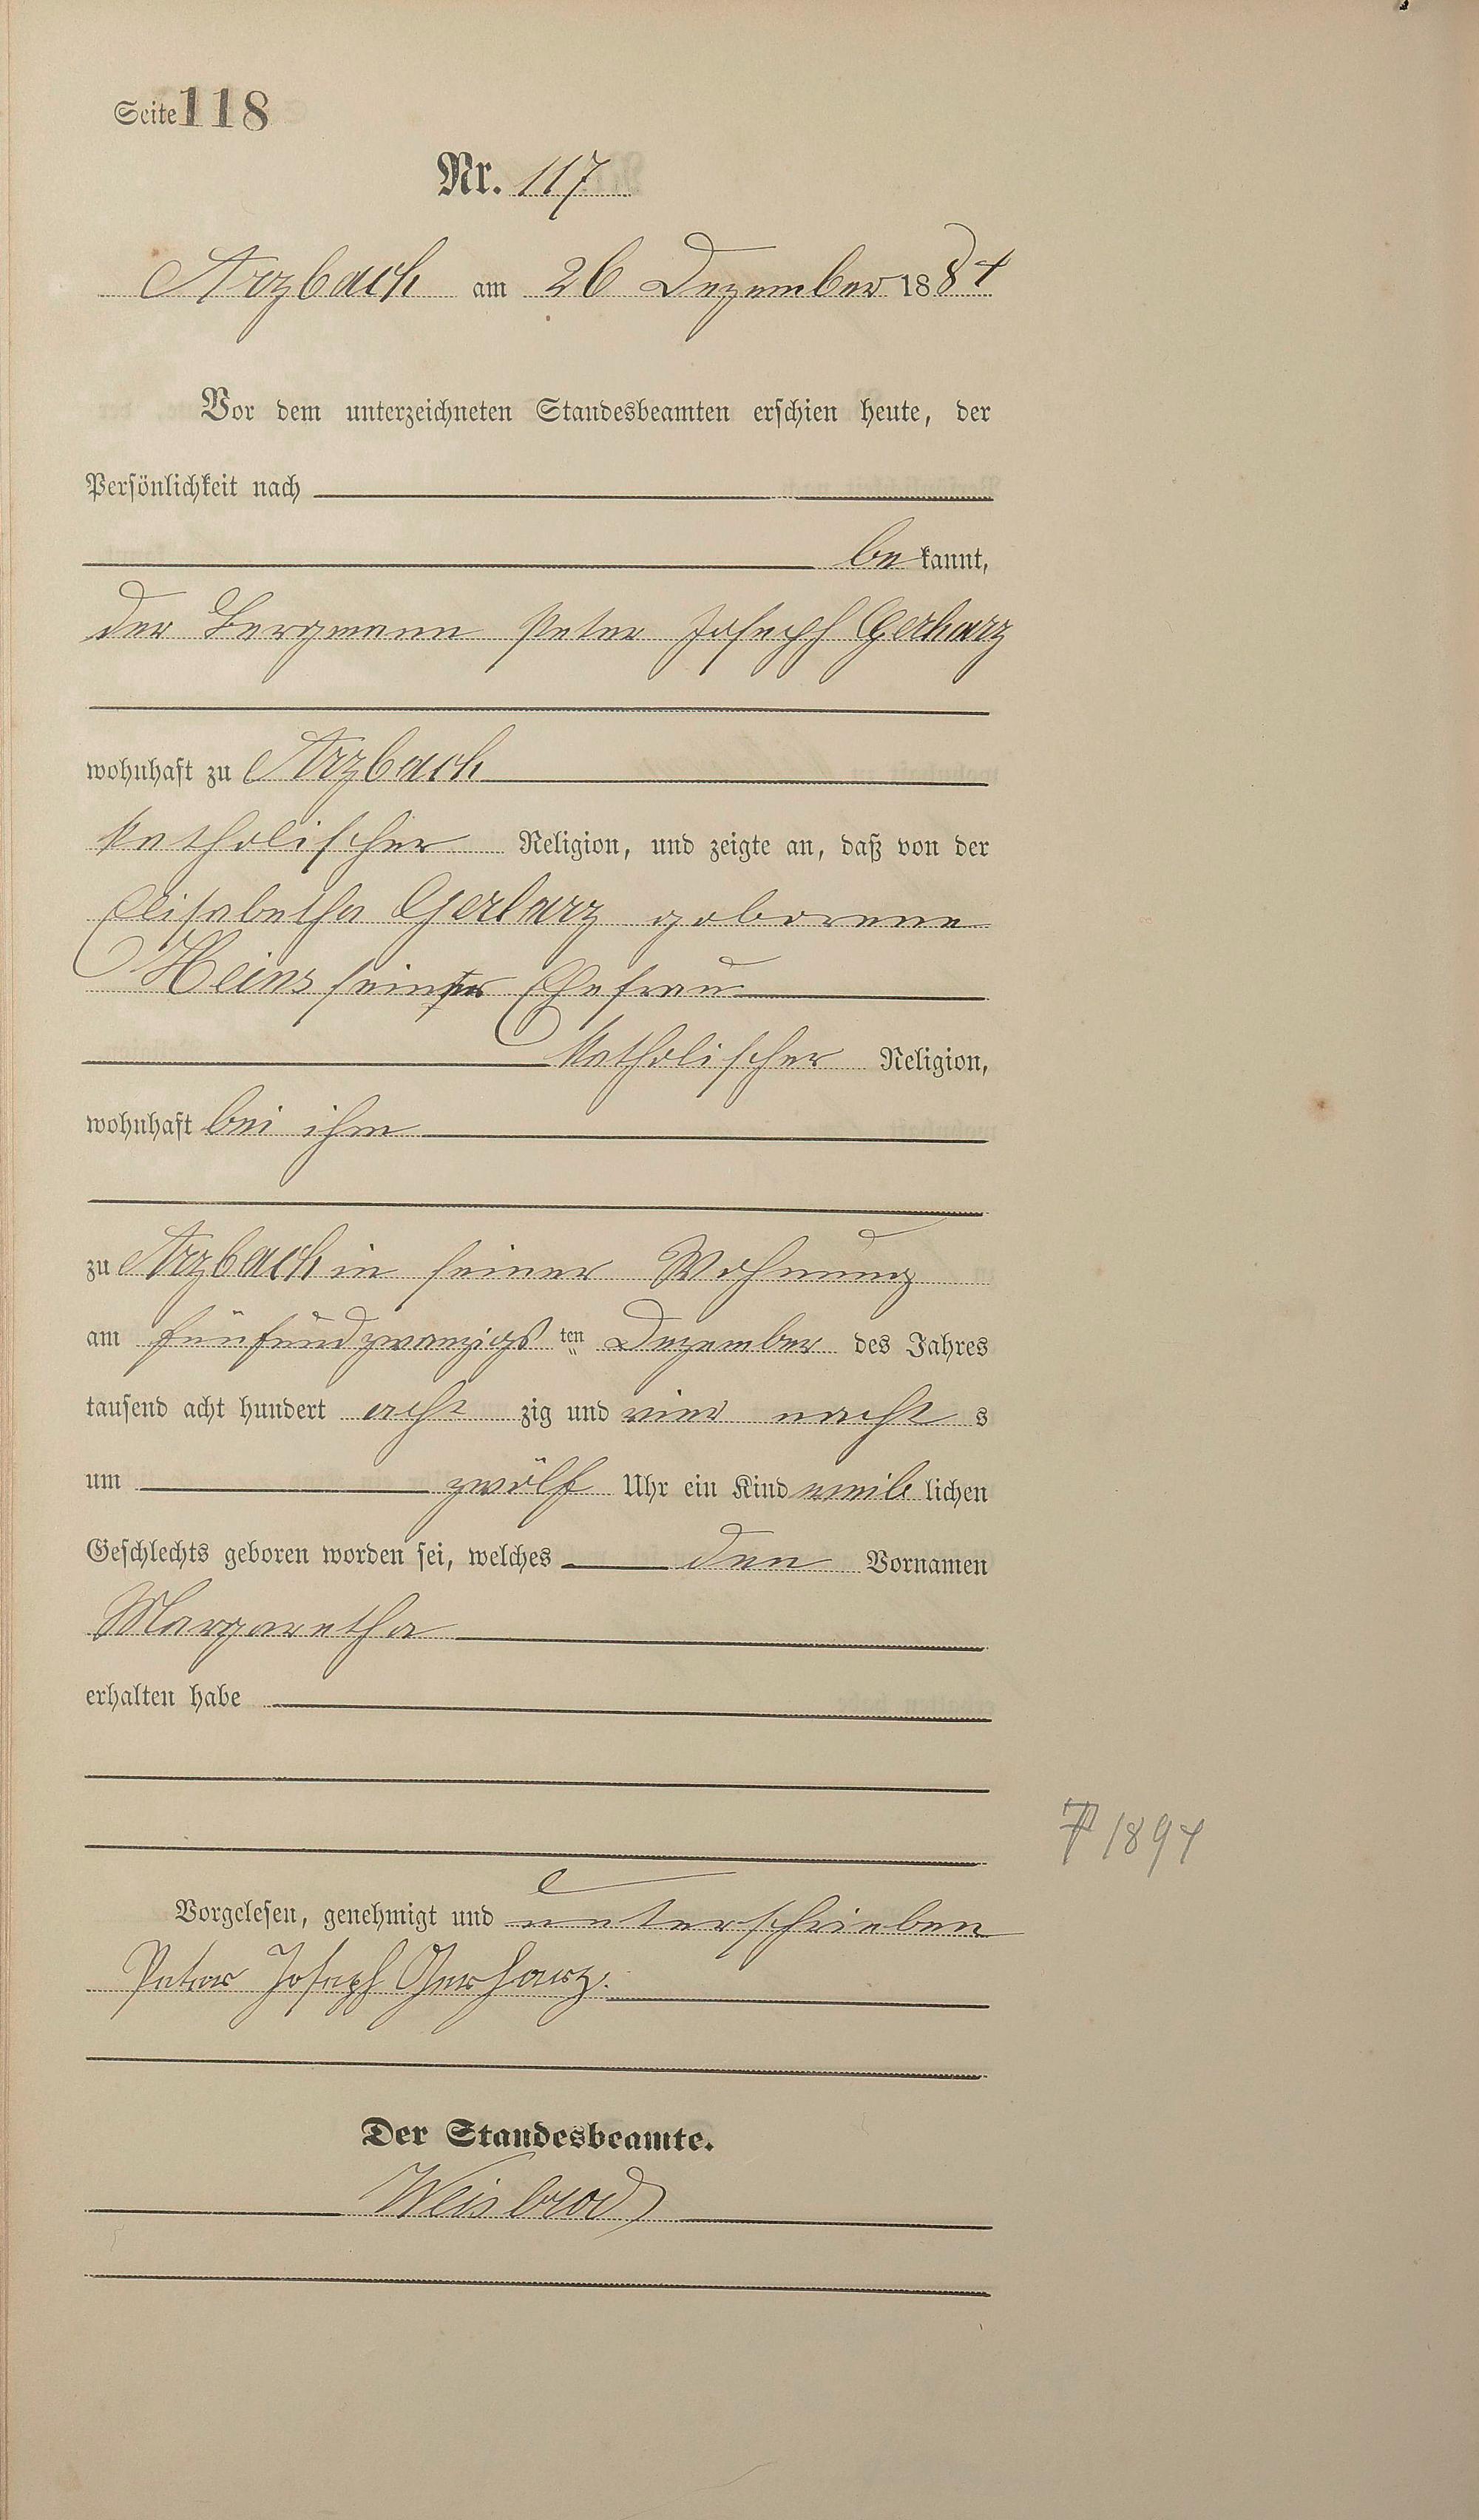 Seite 118
Nr. 117
Arzbach am 26 Dezember 1884
Vor dem unterzeichneten Standesbeamten erschien heute, der
Persönlichkeit nach
bekannt,
der Bergmann Peter Joseph Gerharz
wohnhaft zu Arzbach
katholischer Religion, und zeigte an, daß von der
Elisabetha Gerharz geborene
Heins seiner Ehefrau
katholischer Religion,
wohnhaft bei ihm
zu Arzbach in seiner Wohnung
am fünfundzwanzigsten Dezember des Jahres
tausend acht hundert achtzig und vier nachts
um zwölf Uhr ein Kind weiblichen
Geschlechts geboren worden sei, welches den Vornamen
Margaretha
erhalten habe
1894
Vorgelesen, genehmigt und unterschrieben
Peter Joseph Gerharz.
Der Standesbeamte.
Weisbrod